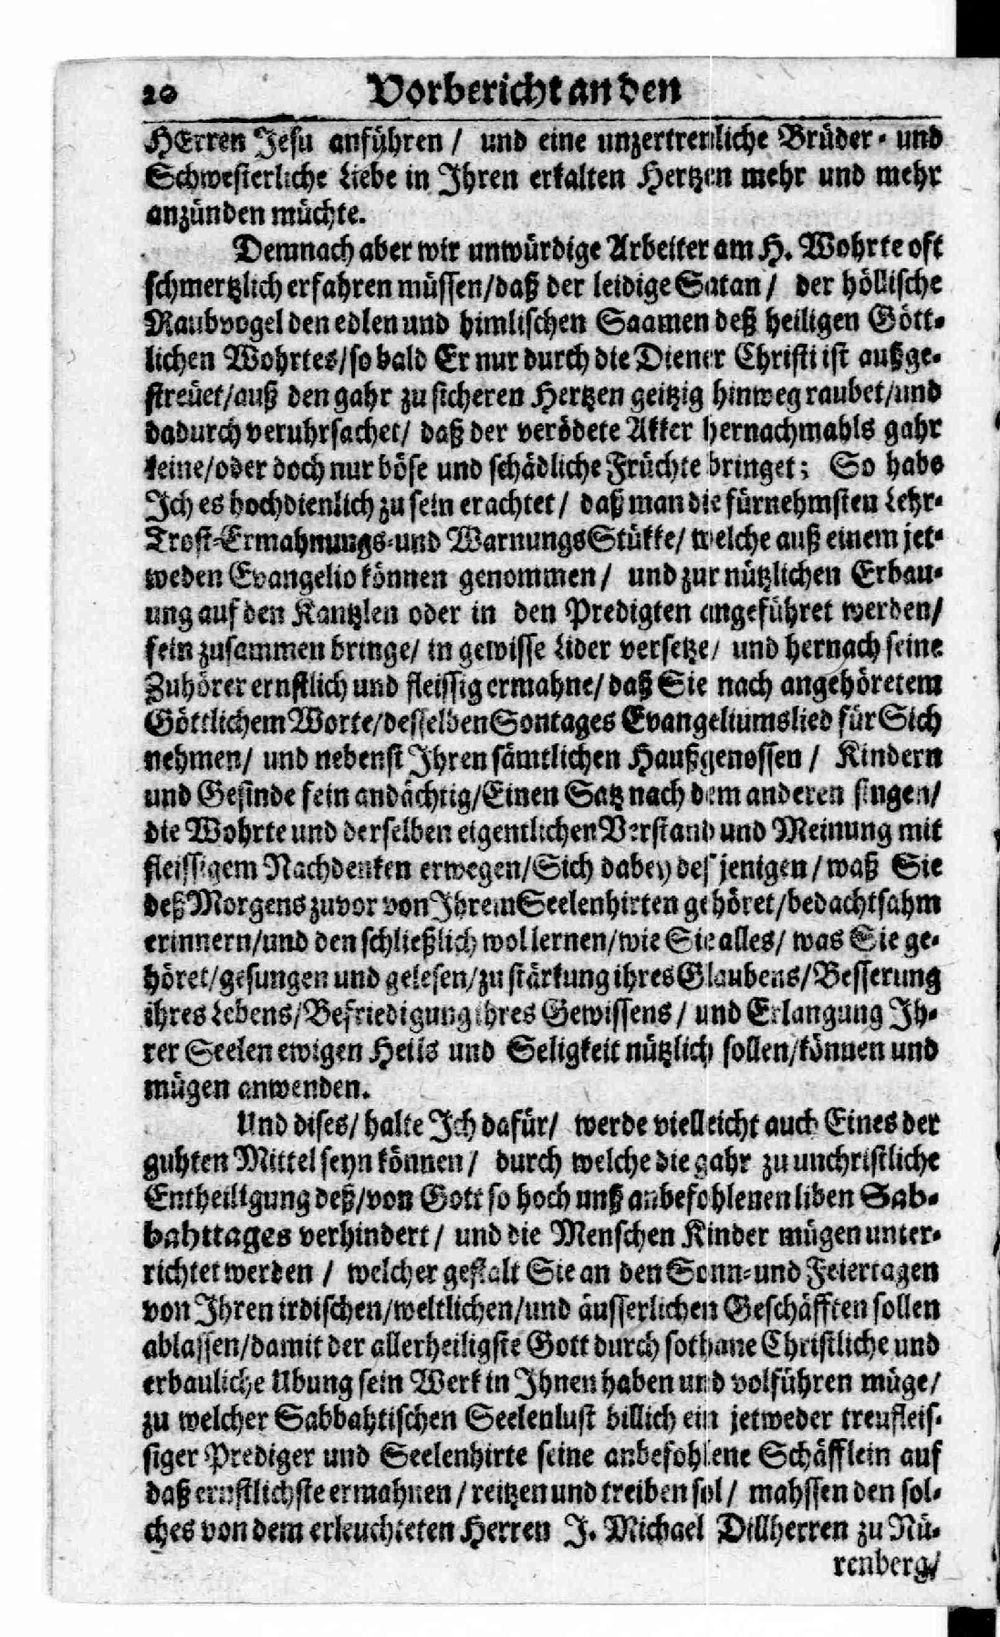 20 Vorbericht an den
HErren Jesu anführen / und eine unzertrenliche Brüder- und
Schwesterliche Liebe in Ihren erkalten Hertzen mehr und mehr
anzünden müchte.
Demnach aber wir unwürdige Arbeiter am H. Wohrte oft
schmertzlich erfahren müssen/daß der leidige Satan / der höllische
Raubvogel den edlen und himlischen Saamen deß heiligen Gött-
lichen Wohrtes/so bald Er nur durch die Diener Christi ist außge-
streüet/auß den gahr zu sicheren Hertzen geitzig hinweg raubet/und
dadurch veruhrsachet/ daß der verödete Akker hernachmahls gahr
keine/oder doch nur böse und schädliche Früchte bringet; So habe
Ich es hochdienlich zu sein erachtet / daß man die fürnehmsten Lehr-
Trost-Ermahnungs-und WarnungsStükke/ welche auß einem jet-
weden Evangelio können genommen / und zur nützlichen Erbau-
ung auf den Kantzlen oder in den Predigten angeführet werden/
fein zusammen bringe/ in gewisse Lider versetze/ und hernach seine
Zuhörer ernstlich und fleissig ermahne/ daß Sie nach angehöretem
Göttlichem Worte/desselben Sontages Evangeliumslied für Sich
nehmen/ und nebenst Ihren sämtlichen Haußgenossen / Kindern
und Gesinde fein andächtig/Einen Satz nach dem anderen singen/
die Wohrte und derselben eigentlichen Verstand und Meinung mit
fleissigem Nachdenken erwegen/Sich dabey desjenigen/waß Sie
deß Morgens zuvor von Ihrem Seelenhirten gehöret/bedachtsahm
erinnern/und den schließlich wol lernen/wie Sie alles/ was Sie ge-
höret/gesungen und gelesen/zu stärkung ihres Glaubens/Besserung
ihres Lebens/Befriedigung ihres Gewissens/ und Erlangung Ih-
rer Seelen ewigen Heils und Seligkeit nützlich sollen/können und
mügen anwenden.
Und dises/ halte Ich dafür/ werde vielleicht auch Eines der
guhten Mittel seyn können/ durch welche die gahr zu unchristliche
Entheiligung deß/von Gott so hoch unß anbefohlenen liben Sab-
bahttages verhindert/ und die Menschen Kinder mügen unter-
richtet werden / welcher gestalt Sie an den Sonn-und Feiertagen
von Ihren irdischen/weltlichen/und äusserlichen Geschäfften sollen
ablassen/damit der allerheiligste Gott durch sothane Christliche und
erbauliche Ubung sein Werk in Ihnen haben und volführen müge/
zu welcher Sabbahtischen Seelenlust billich ein jetweder treufleis-
siger Prediger und Seelenhirte seine anbefohlene Schäfflein auf
daß ernstlichste ermahnen/ reitzen und treiben sol/ mahssen den sol-
ches von dem erleuchteten Herren J. Michael Dillherren zu Nü-
renberg/